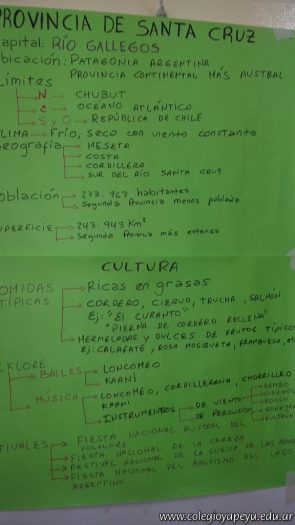 PROVINCIA DE SANTA CRUZ
Capital: RÍO GALLEGOS
Ubicación: PATAGONIA ARGENTINA
PROVINCIA CONTINENTAL MÁS AUSTRAL
Límites
N → CHUBUT
E → OCEANO ATLÁNTICO
S y O → REPÚBLICA DE CHILE
CLIMA → Frío, seco con viento constante
Geografía → MESETA
COSTA
CORDILLERA
SUR DEL RÍO SANTA CRUZ
Población → 273.963 habitantes
Segunda Provincia menos poblada
SUPERFICIE → 243.943 Km²
Segunda Provincia más extensa
CULTURA
COMIDAS TÍPICAS → Ricas en grasas
CORDERO, CIERVO, TRUCHA, SALMÓN
Ej: "EL CURANTO"
"PIERNA DE CORDERO RELLENA"
MERMELADAS Y DULCES DE FRUTOS TÍPICOS
Ej: CALAFATE, ROSA MOSQUETA, FRAMBUESA, etc
FOLKLORE
BAILES → LONCOMEO
KAANÍ
MÚSICA → LONCOMEO, CORDILLERANA, CHORRILLERO
KAANI
INSTRUMENTOS → DE VIENTO
DE PERCUSIÓN
FESTIVALES → FIESTA NACIONAL AUSTRAL DEL
FOLKLORE
FIESTA NACIONAL DE LA CEREZA
FESTIVAL NACIONAL DE LA CUEVA DE LAS MANOS
FIESTA NACIONAL DEL BAUTISMO DEL LAGO
ARGENTINO
www.colegioyapeyu.edu.ar